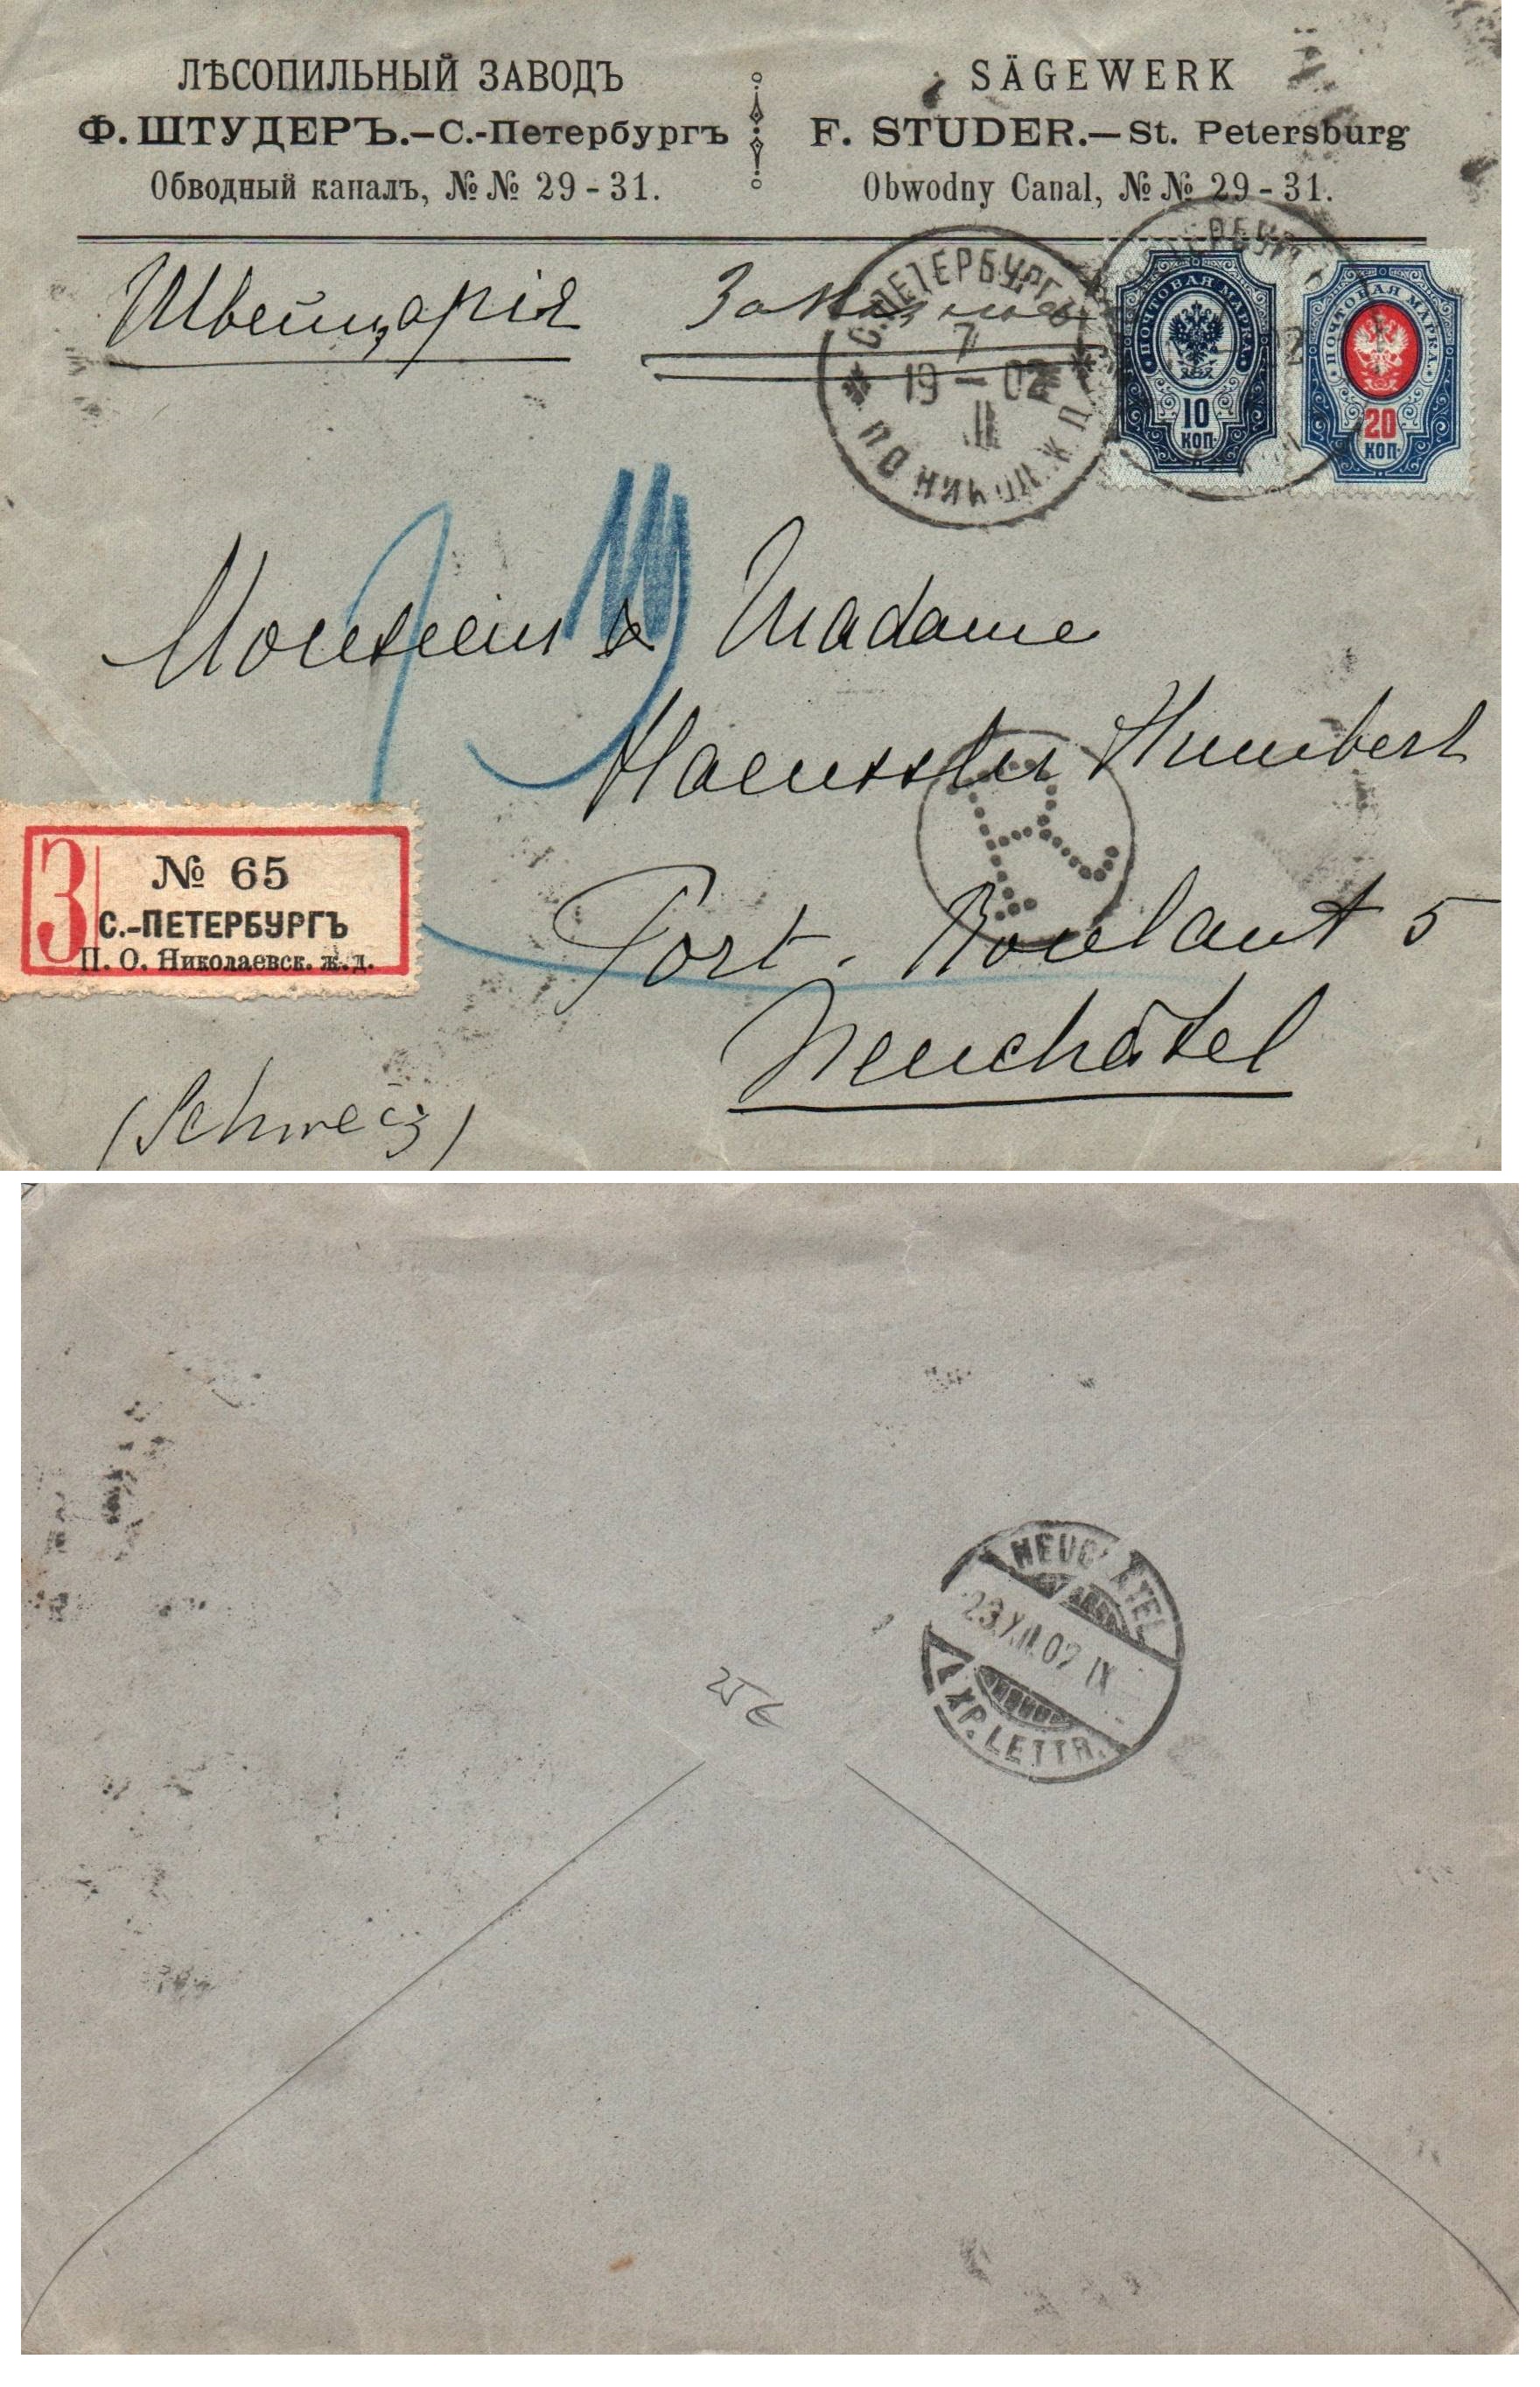 ЛѢСОПИЛЬНЫЙ ЗАВОДЪ
Ф. ШТУДЕРЪ.–С.-Петербургъ
Обводный каналъ, №№ 29-31.
SÄGEWERK
F. STUDER.—St. Petersburg
Obwodny Canal, №№ 29-31.
Швейцарія
Заказное
С.ПЕТЕРБУРГЪ
7
19 – 02
II
ПО НИК
Ж Д
ПОЧТОВАЯ МАРКА
10
КОП.
ПОЧТОВАЯ МАРКА
20
КОП.
Monsieur & Madame
Haenssler Humbert
Port-Roulant 5
Neuchâtel
(Schweiz)
R
З
№ 65
С.-ПЕТЕРБУРГЪ
П. О. Николаевск. ж.д.
NEUCHATEL
23.XII.02 IX
EXP. LETTR.
25 €